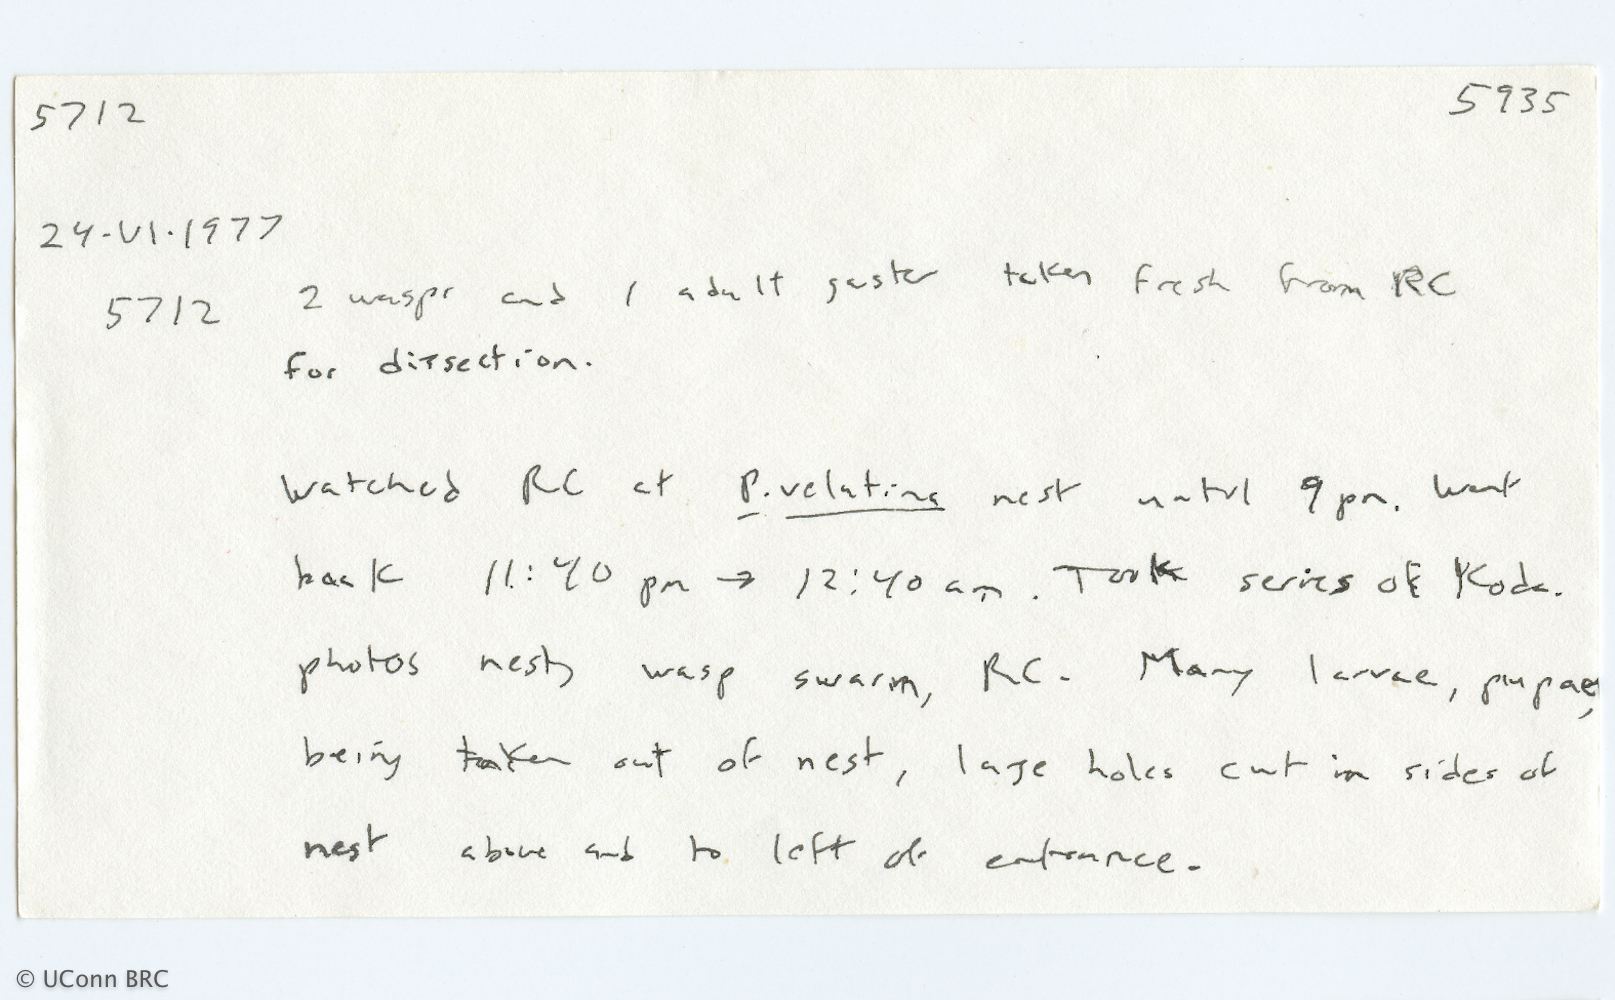 5712 5935
24-VI-1977
5712 2 wasps and 1 adult gaster taken fresh from RC
for dissection.
Watched RC at P. velutina nest until 9 pm. Went
back 11:40 pm → 12:40 am. Took series of Koda.
photos nest, wasp swarm, RC. Many larvae, pupae,
being taken out of nest, large holes cut in sides of
nest above and to left of entrance.
© UConn BRC